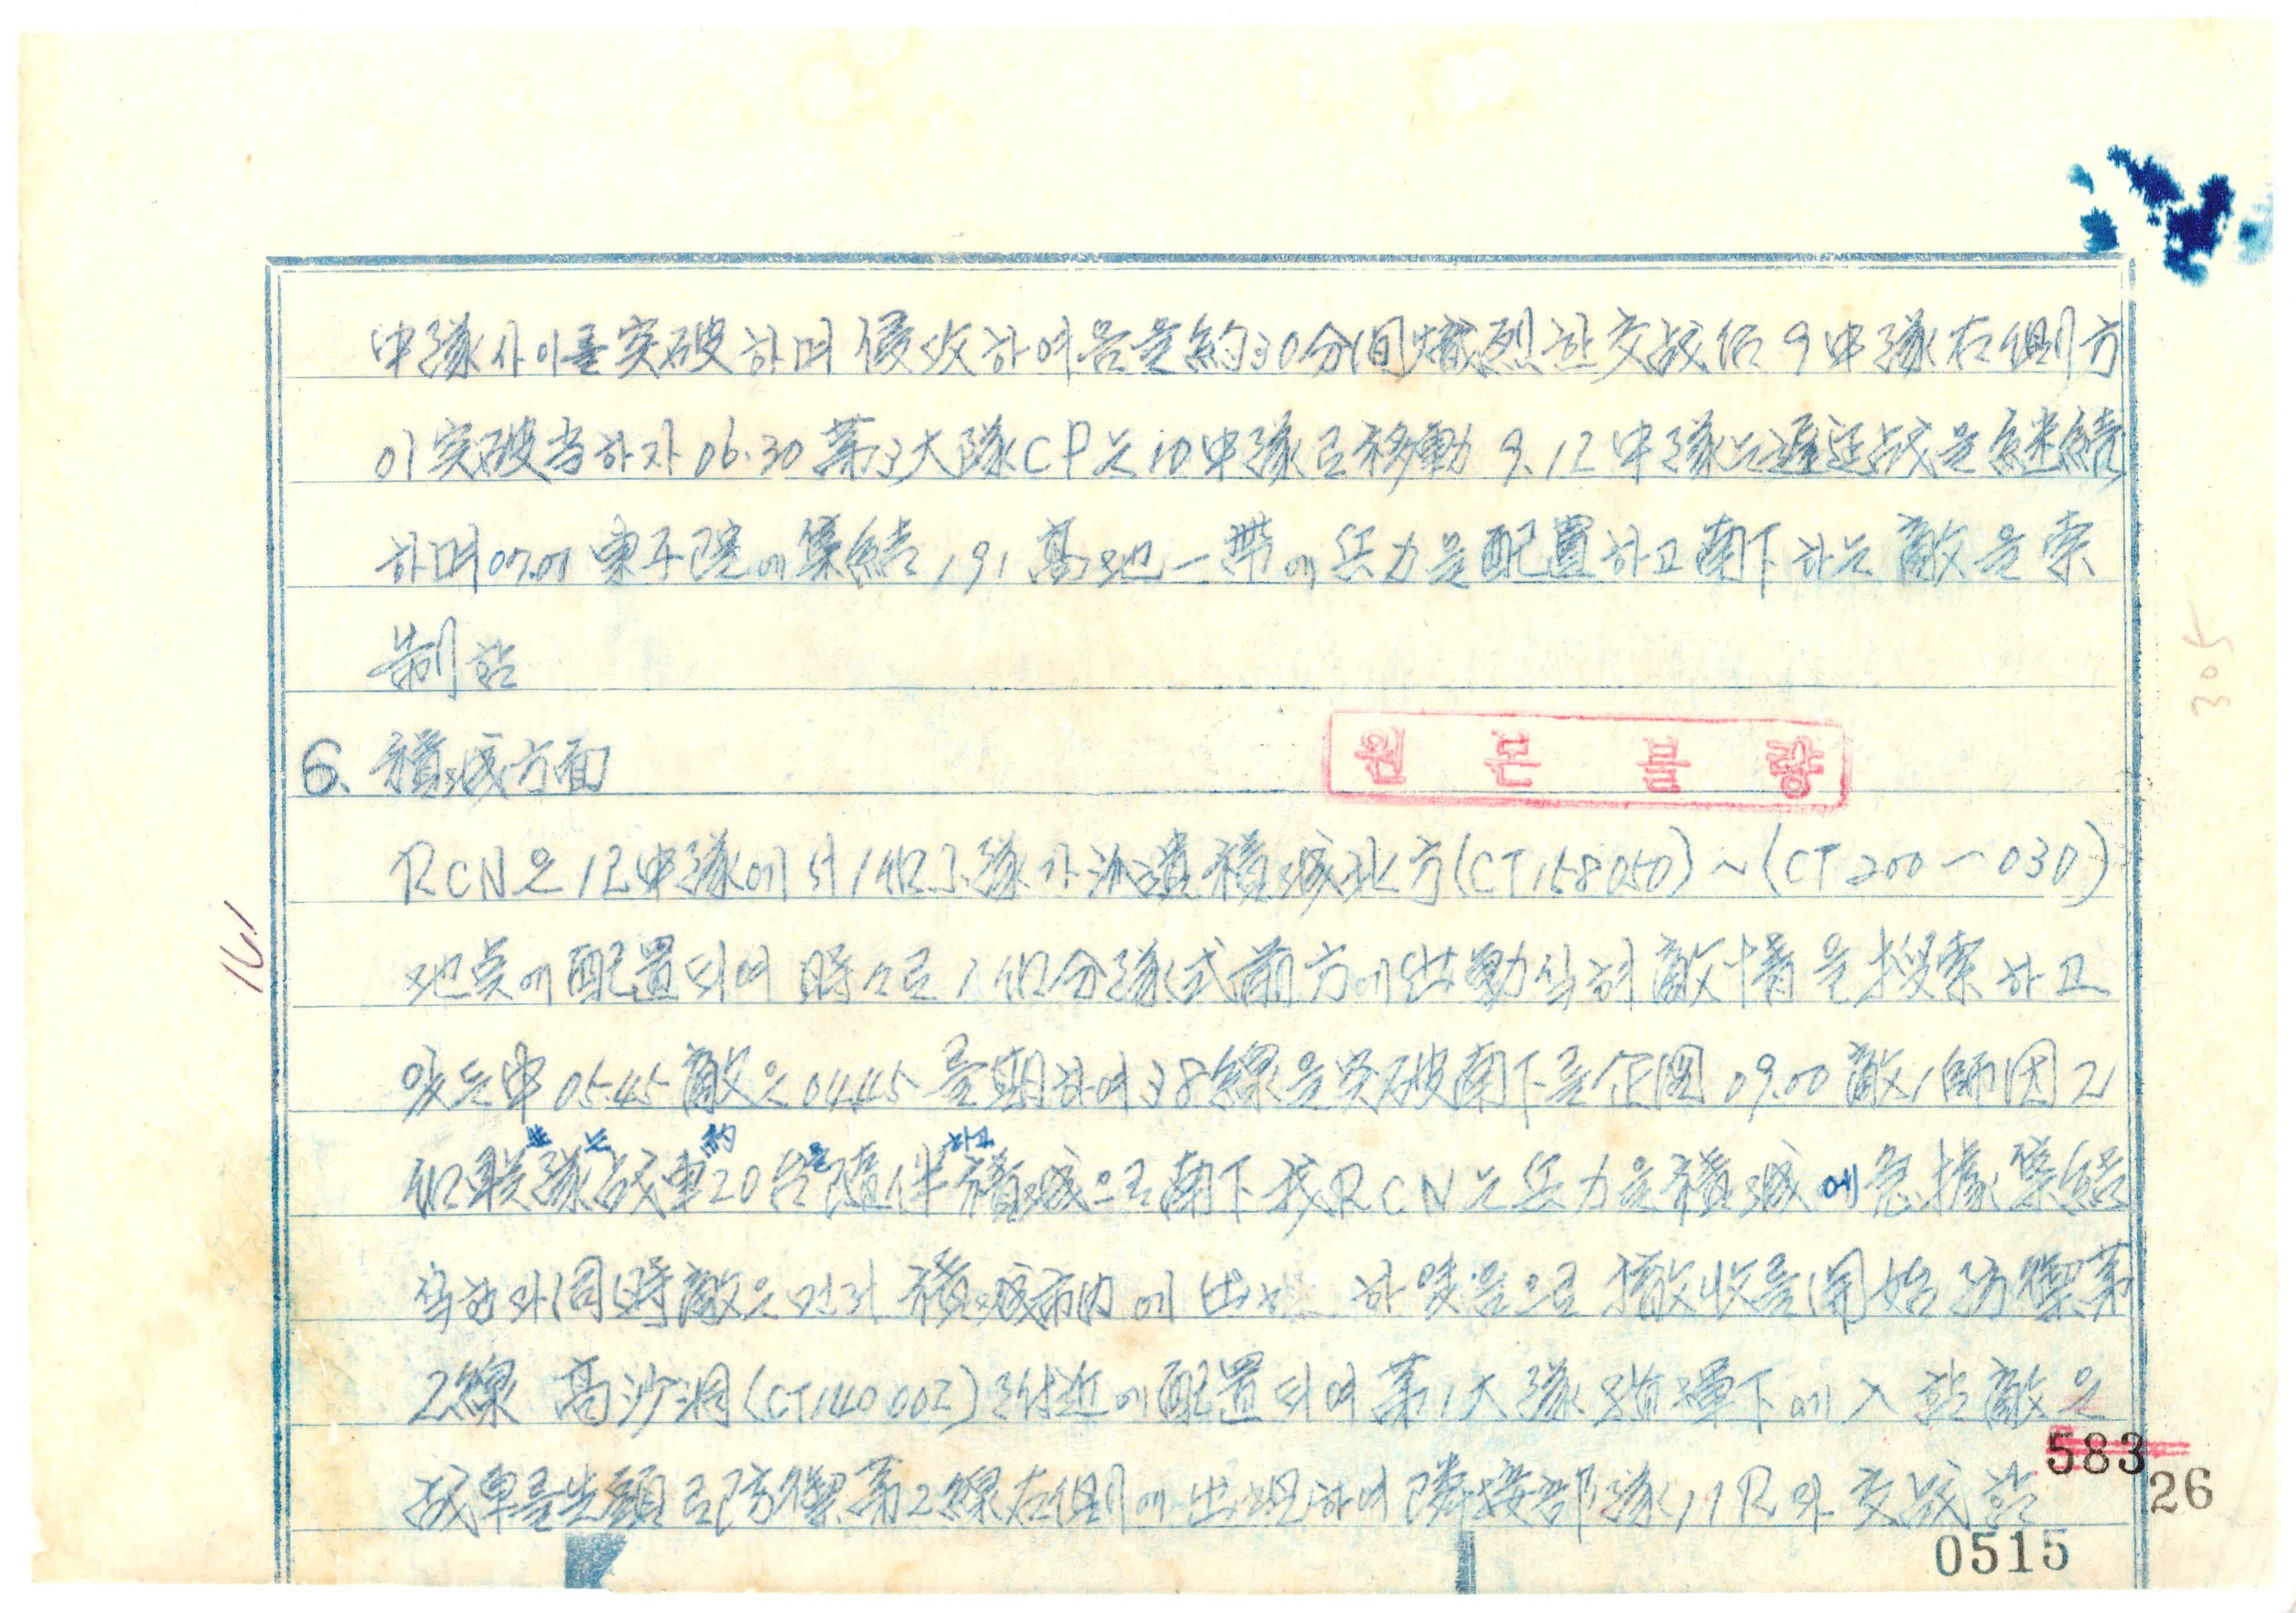 中隊사이를突破하며侵攻하여옴을約30分間熾烈한交戰后 9中隊右側方
이突破當하자 06.30 第3大隊CP는 10中隊로移動 9.12中隊는遲延战을継続
하며 07.00 東子院에集結 191高地一帶에兵力을配置하고南下하는敵을牽
制함
6. 積城方面
원본불량
RCN은 12中隊에서 1個小隊가派遣積城北方(CT158050)~(CT200-030)
地点에配置되여 時々로 1個分隊式前方에出動식혀敵情을搜索하고
있는中 05.45 敵은 04.45를期하여 38線을突破南下를企図 09.00 敵1師団2
個聯隊는战車約20台을隨伴하고積城으로南下 我RCN는兵力을積城에急據集結
식힘과同時敵은먼저 積城市內에出 하였음으로 撤收를開始 防禦第
2線 高沙洞(CT140002)附近에配置되여第1大隊指揮下에入함敵은
战車를先頭로防禦第2線右側에出現하여隣接部隊11R와交战함
305
161
583
26
0515